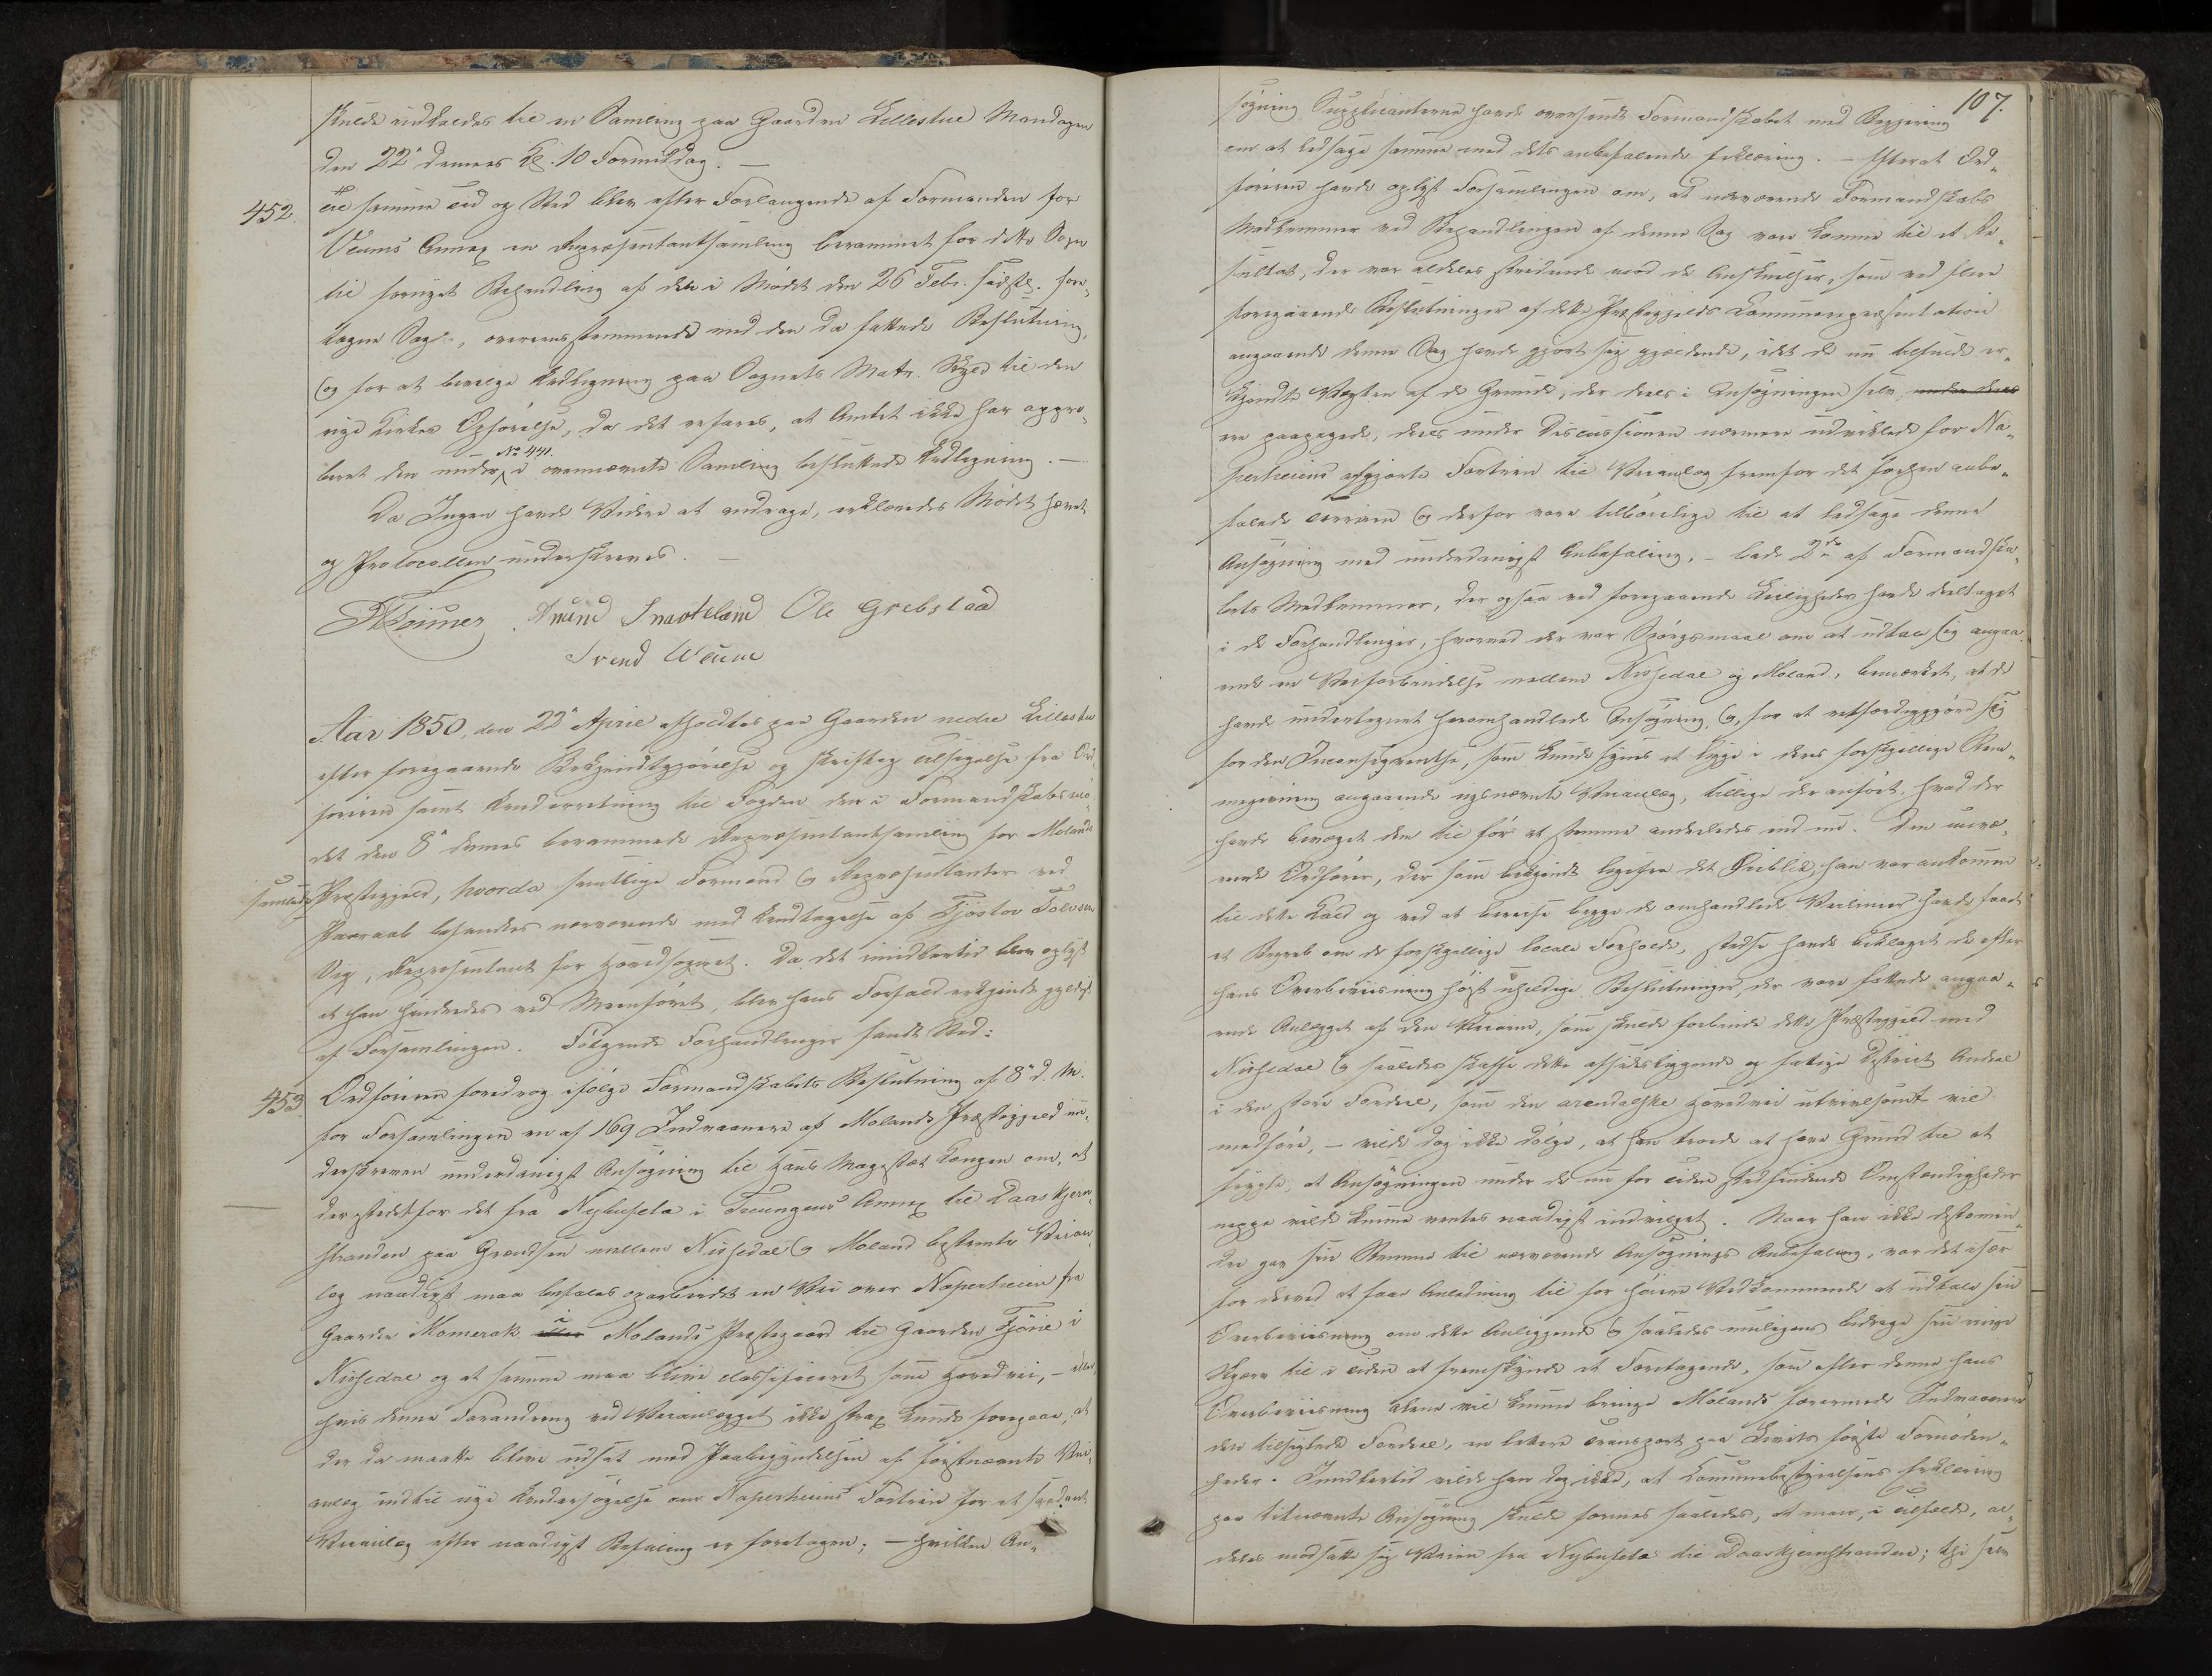 skulde indkaldes til en Samling paa Gaarden Lillestue Mandagen
den 22de dennes Kl. 10 Formiddag. —
452. Til samme Tid og Sted blev efter Forlangende af Formanden for
Veums Annex en Repræsentantsamling berammet for dette Sogn
til fornyet Behandling af den i Mødet den 26 Febr. sidstl. fore-
tagne Sag, overeensstemmende med den da fattede Beslutning,
og for at bevilge Udligning paa Sognets Matr. Skyld til den
nye Kirkes Opførelse, da det erfares, at Amtet ikke har appro-
beret den under No 441. i ovennævnte Samling besluttede Udligning. —
Da Ingen havde Videre at andrage, erklæredes Mødet hævet
og Protocollen underskreves. —
Aanund Snarteland Ole Grebstad
Svend Weum
Aar 1850, den 22de April afholdtes paa Gaarden nedre Lillestue
efter foregaaende Bekjendtgjørelse og skriftlig Tilsigelse fra Ord-
føreren samt Underretning til Fogden den i Formandskabsmø-
det den 8de dennes berammede Repræsentantsamling for Molands
samlede Præstegjeld, hvorda samtlige Formænd og Repræsentanter ved
Paaraab befandtes nærværende med Undtagelse af Tjøstov Tolvsen
Vig, Repræsentant for Hovedsognet. Da det imidlertid blev oplyst
at han hindredes ved Menføret, blev hans Forfald erkjendt gyldigt
af Forsamlingen. Følgende Forhandlinger fandt Sted:
453. Ordføreren foredrog ifølge Formandskabets Beslutning af 8de d. M.
for Forsamlingen en af 169 Indvaanere af Molands Præstegjeld un-
derskreven underdanigst Ansøgning til Hans Majestæt Kongen om, at
der istedetfor det fra Nybufeta i Treungens Annex til Daaskjern-
stranden paa Grændsen mellem Nissedal og Moland bestemte Veian-
læg naadigst maa befales oparbeidet en Vei over Napertheien fra
Gaarden Momerak i Molands Præstegaard til Gaarden Fjone i
Nissedal og at samme maa blive classificeret som Hovedvei, — eller,
hvis denne Forandring ved Veianlægget ikke strax kunde foregaae, at
der da maatte blive udsat med Paabegyndelsen af førstnævnte Vei-
anlæg indtil nye Undersøgelse om Napertheiens Fortrin for et saadant
Veianlæg efter naadigst Befaling er foretagen; — hvilken An-
107.
søgning Supplicanterne havde oversendt Formandskabet med Begjering
om at ledsage samme med dets anbefalende Erklæring. — Efterat Ord-
føreren havde oplyst Forsamlingen om, at nærværende Formandskabs
Medlemmer ved Behandlingen af denne Sag vare komne til et Re-
sultat, der var aldeles stridende mod de Anskuelser, som ved flere
foregaaende Beslutninger af dette Præstegjelds Communerepræsentation
angaaende denne Sag havde gjort sig gjældende, idet de nu tilfulde er-
kjendte Vægten af de Grunde, der deels i Ansøgningen selv, under deres
ere paapegede, deels under Discussionen nærmere udviklede for Na-
pertheiens afgjorte Fortrin til Veianlæg fremfor det forhen anbe-
falede Terrain og derfor vare tilbøielige til at ledsage denne
Ansøgning med underdanigst Anbefaling, — bade 2de af Formandska-
bets Medlemmer, der ogsaa ved foregaaende Leiligheder havde deeltaget
i de Forhandlinger, hvorved der var Spørgsmaal om at udtale sig angaa-
ende en Veiforbindelse mellem Nissedal og Moland, bemærket, at de
havde undertegnet heromhandlede Ansøgning, og, for at retfærdiggjøre sig
for den Inconsequentse, som kunde synes at ligge i deres forskjellige Stem-
megivning angaaende ovennævnte Veianlæg, tillige der anført, hvad der
havde bevæget dem til før at stemme anderledes end nu. Den nuvæ-
rende Ordfører, der som bekjendt ligefra det Øieblik, han var ankommen
til dette Kald og ved at bereise begge de omhandlede Veilinier havde faaet
et Begreb om de forskjellige locale Forholde, stedse havde beklaget de efter
hans Overbeviisning høist uheldige Beslutninger, der vare fattede angaa-
ende Anlægget af den Veiarm, som skulde forbinde dette Præstegjeld med
Nissedal og saaledes skaffe dette afsidesliggende og fattige District Andeel
i den store Fordeel, som den arendalske Hovedvei utvivlsomt vil
medføre, — vilde dog ikke dølge, at han troede at have Grund til at
frygte, at Ansøgningen under de nu for Tiden stedfindende Omstændigheder
neppe vilde kunne ventes naadigst indvilget. Naar han ikke destomin-
dre gav sin Stemme til nærværende Ansøgnings Anbefaling, var det især
for derved at faae Anledning til for høiere Vedkommende at udtale sin
Overbeviisning om dette Anliggende og saaledes muligens bidrage sin ringe
Skjærv til i Tiden at fremskynde et Foretagende, som efter denne hans
Overbeviisning alene vil kunne bringe Molands forarmede Indvaanere
den tilsigtede Fordeel, en lettere Transport paa Livets første Fornøden-
heder. Imidlertid vilde han dog ikke, at Communebestyrelsens Erklæring
paa bemeldte Ansøgning skulde formes saaledes, at man, i Tilfælde, al-
deles modsatte sig Veien fra Nybufeta til Daaskjernstranden; thi selv